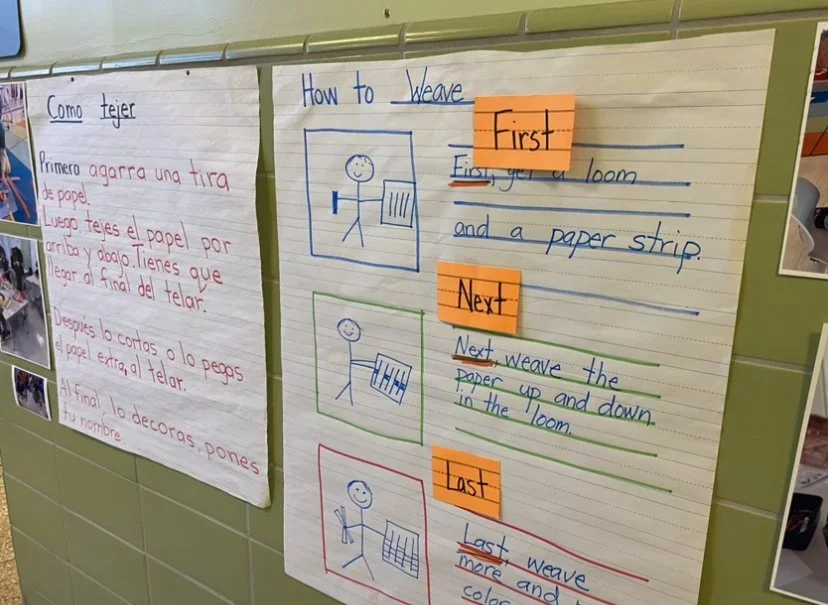 Como tejer
Primero agarra una tira
de papel.
Luego tejes el papel por
arriba y abajo. Tienes que
llegar al final del telar.
Despues lo cortas o lo pegas
el papel extra, al telar.
Al final, lo decoras, pones
tu nombre.
How to Weave
First
First, get a loom
and a paper strip.
Next
Next, weave the
paper up and down
in the loom.
Last
Last, weave
more and